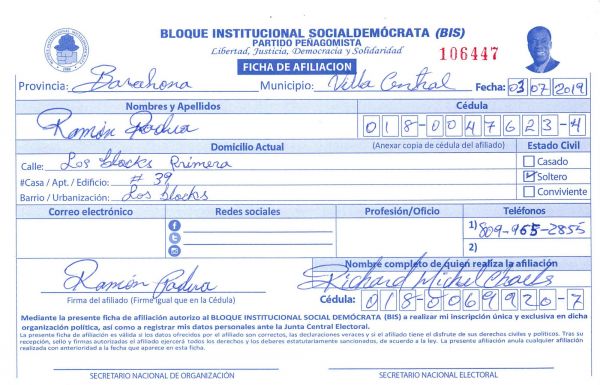 BLOQUE INSTITUCIONAL SOCIALDEMÓCRATA (BIS)
PARTIDO PEÑAGOMISTA
Libertad, Justicia, Democracia y Solidaridad
106447
FICHA DE AFILIACION
Provincia: Barahona Municipio: Villa Central Fecha: 03/07/2019
Nombres y Apellidos Cédula
Ramón Padua 018-0047623-4
Domicilio Actual (Anexar copia de cédula del afiliado) Estado Civil
Calle: Los blocks Primera Casado
#Casa / Apt. / Edificio: # 39 Soltero
Barrio / Urbanización: Los blocks Conviviente
Correo electrónico Redes sociales Profesión/Oficio Teléfonos
1) 809-965-2855
2)
Nombre completo de quien realiza la afiliación
Ramón Padua Richard Michel
Firma del afiliado (Firme igual que en la Cédula) Cédula: 018-0069920-7
Mediante la presente ficha de afiliación autorizo al BLOQUE INSTITUCIONAL SOCIAL DEMÓCRATA (BIS) a realizar mi inscripción única y exclusiva en dicha
organización política, así como a registrar mis datos personales ante la Junta Central Electoral.
La presente ficha de afiliación es válida si los datos ofrecidos por el afiliado son correctas, las declaraciones veraces y si el afiliado tiene el disfrute de sus derechos civiles y políticos. Tras su
recepción, sello y firmas autorizadas el afiliado ejercerá todos los derechos y los deberes estatutariamente sancionados, de acuerdo a la ley. La presente afiliación anula cualquier afiliación
realizada con anterioridad a la fecha que aparece en esta ficha.
SECRETARIO NACIONAL DE ORGANIZACIÓN SECRETARIO NACIONAL ELECTORAL